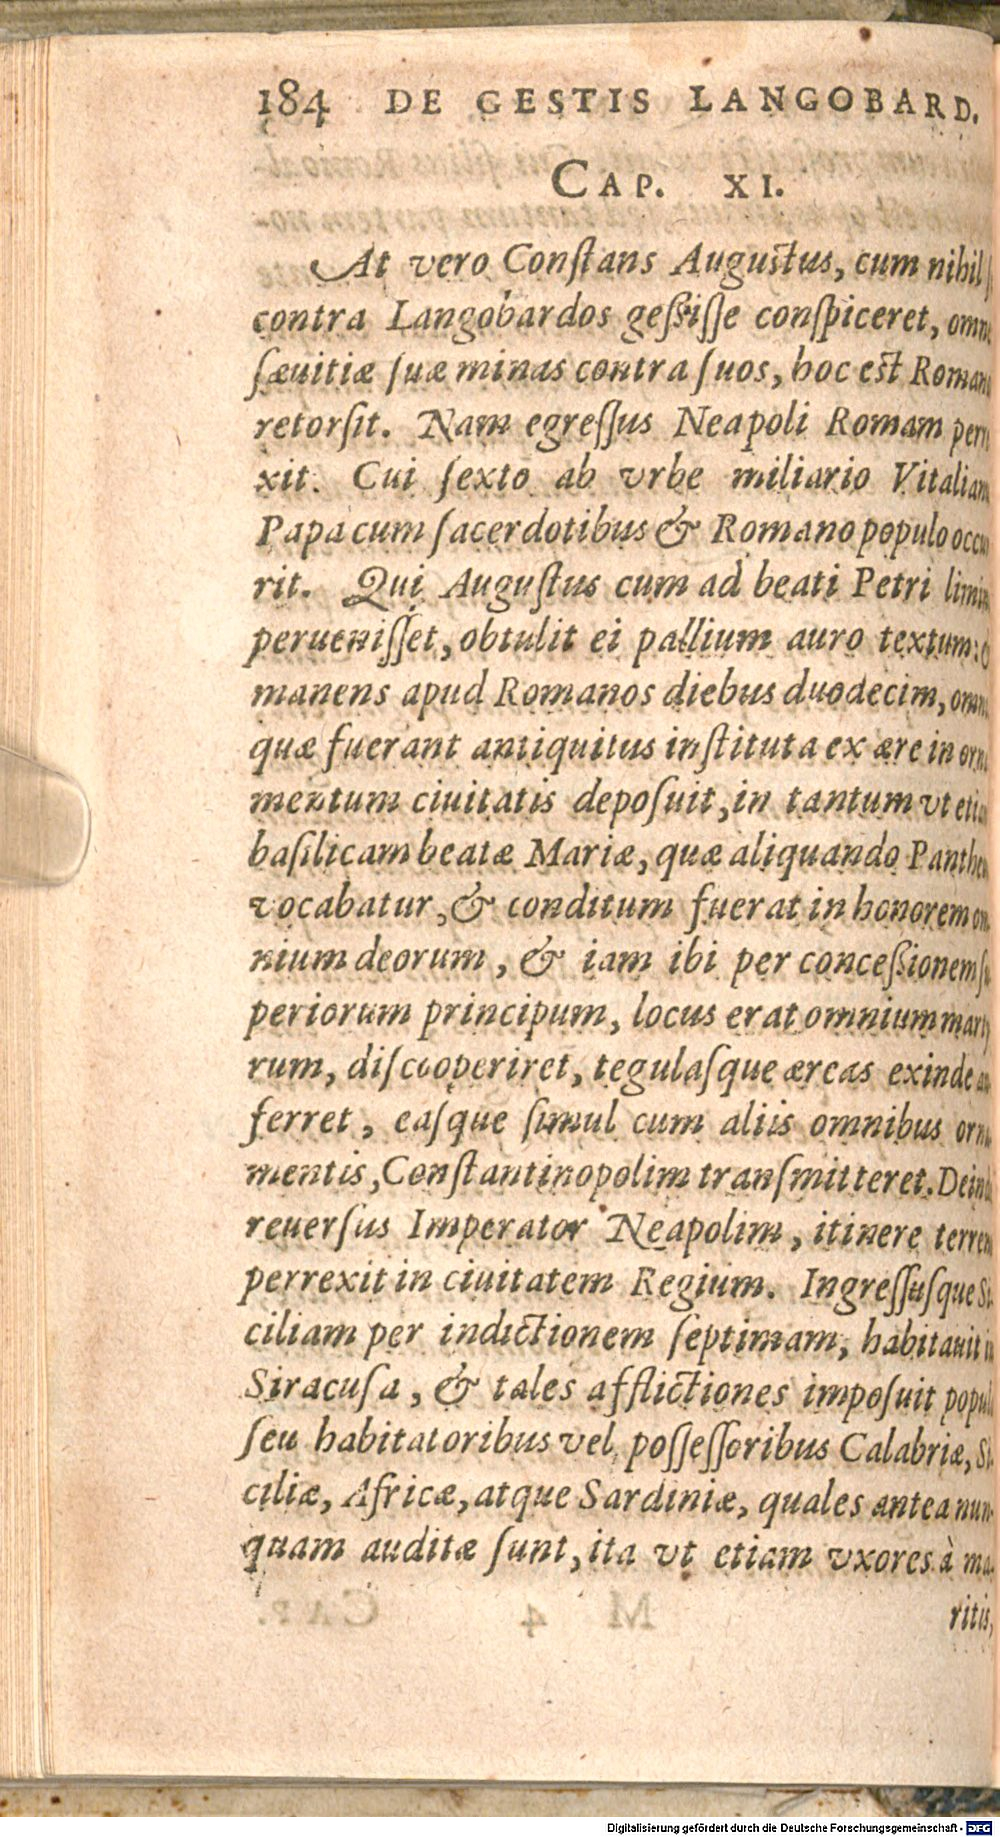 184 DE GESTIS LANGOBARD.
CAP. XI.
At vero Conſtans Auguſtus, cum nihil
contra Langobardos geſſiſſe conſpiceret, omn
ſæuitiæ ſuæ minas contra ſuos, hoc eſt Roman
retorſit. Nam egreſſus Neapoli Romam perr
xit. Cui ſexto ab vrbe miliario Vitalian
Papa cum ſacerdotibus & Romano populo occu
rit. Qui Auguſtus cum ad beati Petri limin
perueniſſet, obtulit ei pallium auro textum:
manens apud Romanos diebus duodecim, omn
quæ fuerant antiquitus inſtituta ex ære in orn
mentum ciuitatis depoſuit, in tantum vt etia
baſilicam beatæ Mariæ, quæ aliquando Panthe
vocabatur, & conditum fuerat in honorem om
nium deorum, & iam ibi per conceſſionem ſu
periorum principum, locus erat omnium marty
rum, diſcooperiret, tegulaſque æreas exinde au
ferret, eaſque ſimul cum aliis omnibus orna
mentis, Conſtantinopolim tranſmitteret. Deind
reuerſus Imperator Neapolim, itinere terren
perrexit in ciuitatem Regium. Ingreſſuſque Si
ciliam per indictionem ſeptimam, habitauit in
Siracuſa, & tales afflictiones impoſuit popul
ſeu habitatoribus vel poſſeſſoribus Calabriæ, Si-
ciliæ, Africæ, atque Sardiniæ, quales antea nun-
quam auditæ ſunt, ita vt etiam vxores à ma-
ritis,
Digitalisierung gefördert durch die Deutsche Forschungsgemeinschaft - DFG